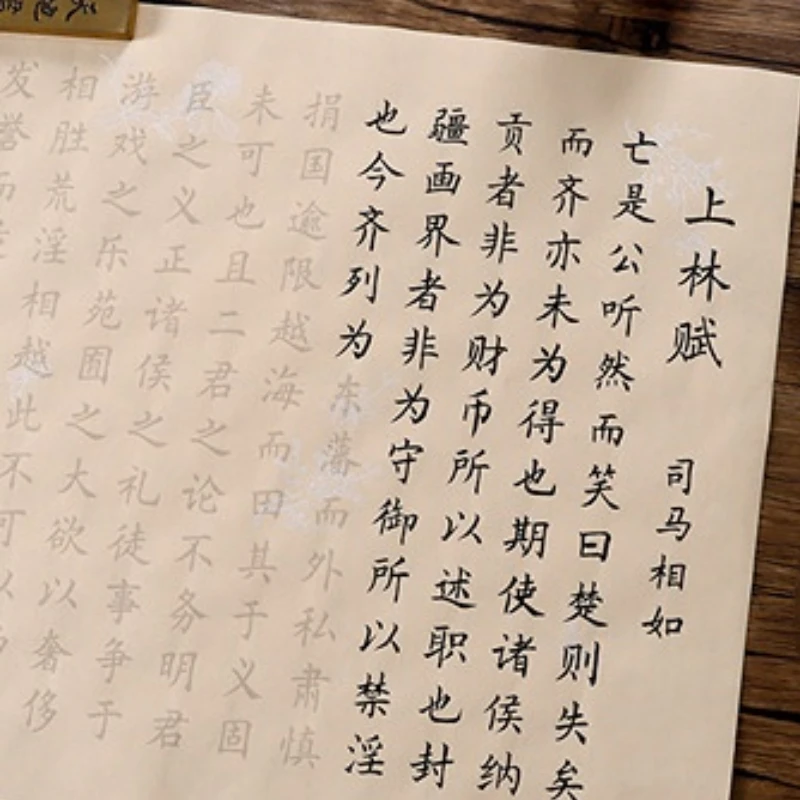 上林赋 司马相如
亡是公听然而笑曰楚则失矣
而齐亦未为得也期使诸侯纳
贡者非为财币所以述职也封
疆画界者非为守御所以禁淫
也今齐列为东藩而外私肃慎
捐国逾限越海而田其于义固
未可也且二君之论不务明君
臣之义正诸侯之礼徒事争于
游戏之乐苑囿之大欲以奢侈
相胜荒淫相越此不可以
发誉而